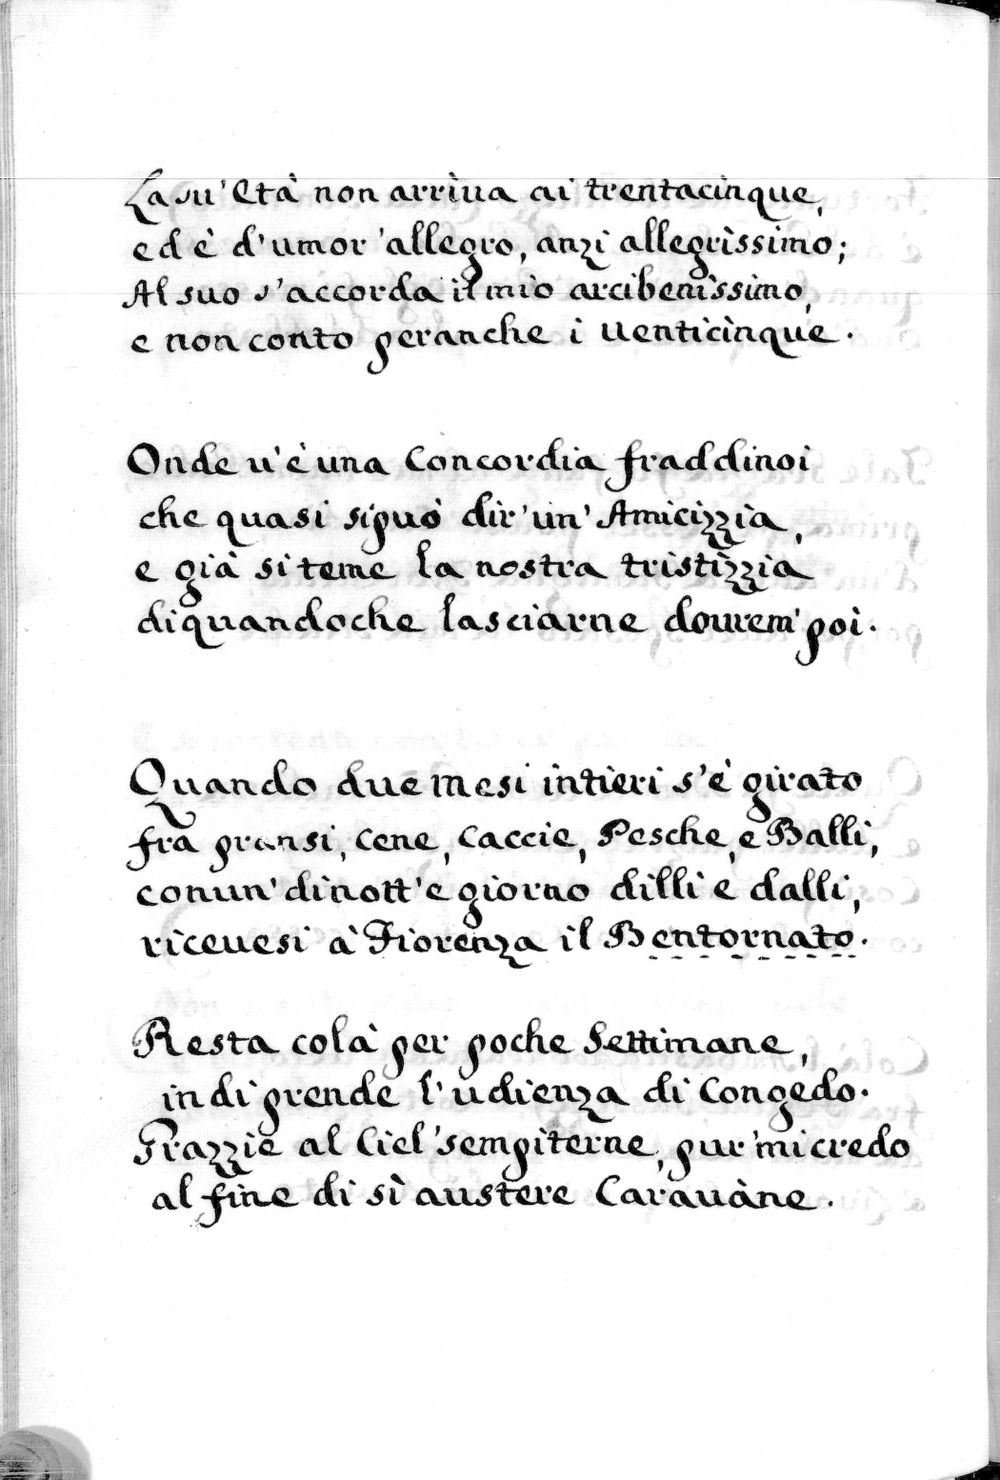 La su' Età non arrìua ai trentacinque,
ed è d'umor 'allegro, anzi allegrìssimo;
Al suo s'accorda il mìo arcibenìssimo,
e non conto peranche i uenticìnque.
Onde u'è una Concordia fraddinoi
che quasi si può dir' un' Amicizzìa,
e già si teme la nostra tristìzzia
diquandoche lasciarne dourem' poi.
Quando due mesi intieri s'è girato
fra pransi, Cene, Caccie, Pesche, e Balli,
conun' dinott' e giorno dilli e dalli,
riceuesi à Fiorenza il Bentornato.
Resta colà per poche Settimane,
indi prende l'udienza di Congedo.
Grazzie al Ciel' sempiterne, pur' mi credo
al fine di sì austere Carauàne.